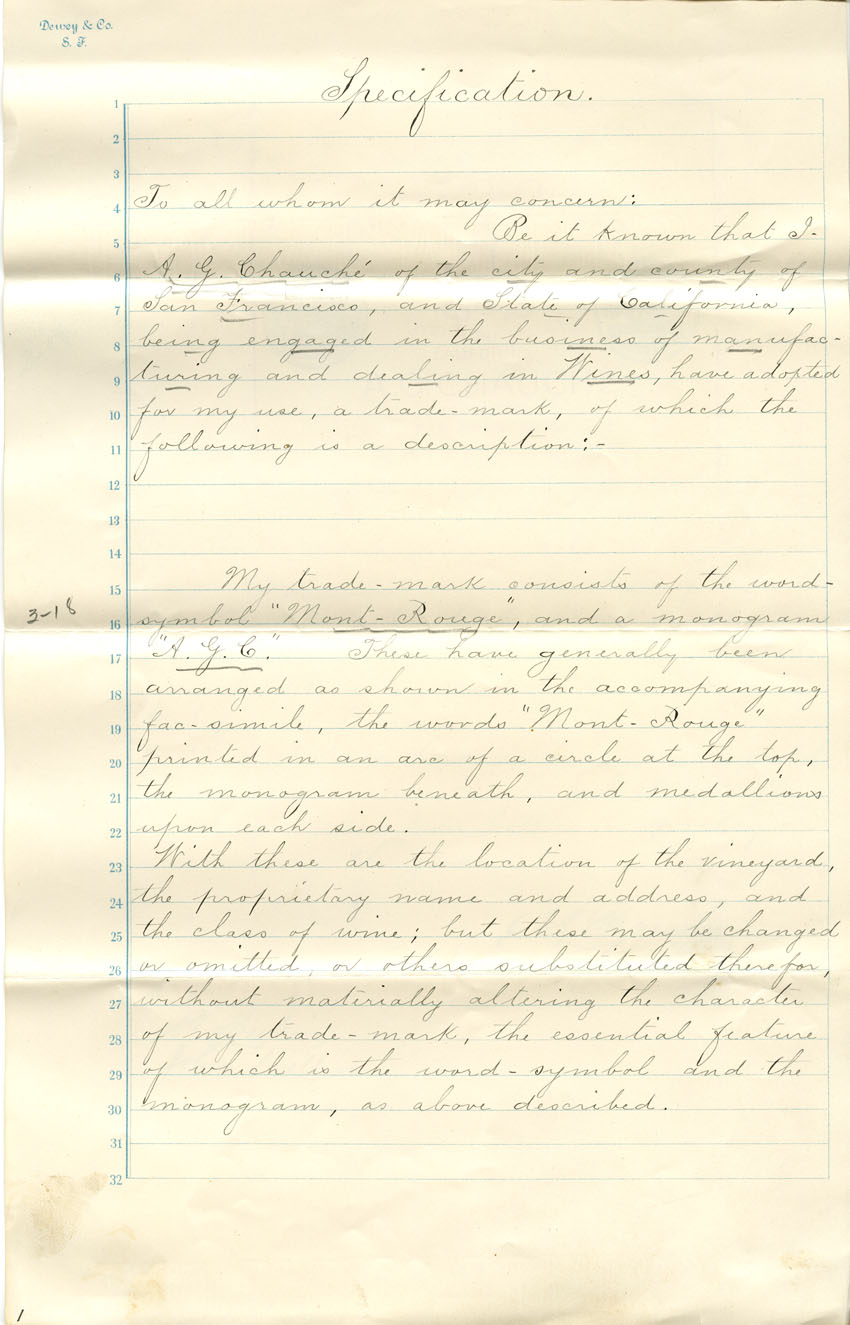 Dewey & Co.
S. F.
Specification.
1
2
3
4 To all whom it may concern:
5 Be it known that I-
6 A. G. Chauché of the city and county of
7 San Francisco, and State of California,
8 being engaged in the business of manufac-
9 turing and dealing in Wines, have adopted
10 for my use, a trade-mark, of which the
11 following is a description:-
12
13
14
15 My trade-mark consists of the word-
3-18
16 symbol "Mont-Rouge", and a monogram
17 "A. G. C." These have generally been
18 arranged as shown in the accompanying
19 fac-simile, the words "Mont-Rouge"
20 printed in an arc of a circle at the top,
21 the monogram beneath, and medallions
22 upon each side.
23 With these are the location of the vineyard,
24 the proprietary name and address, and
25 the class of wine; but these may be changed
26 or omitted, or others substituted therefor,
27 without materially altering the character
28 of my trade-mark, the essential feature
29 of which is the word-symbol and the
30 monogram, as above described.
31
32
1